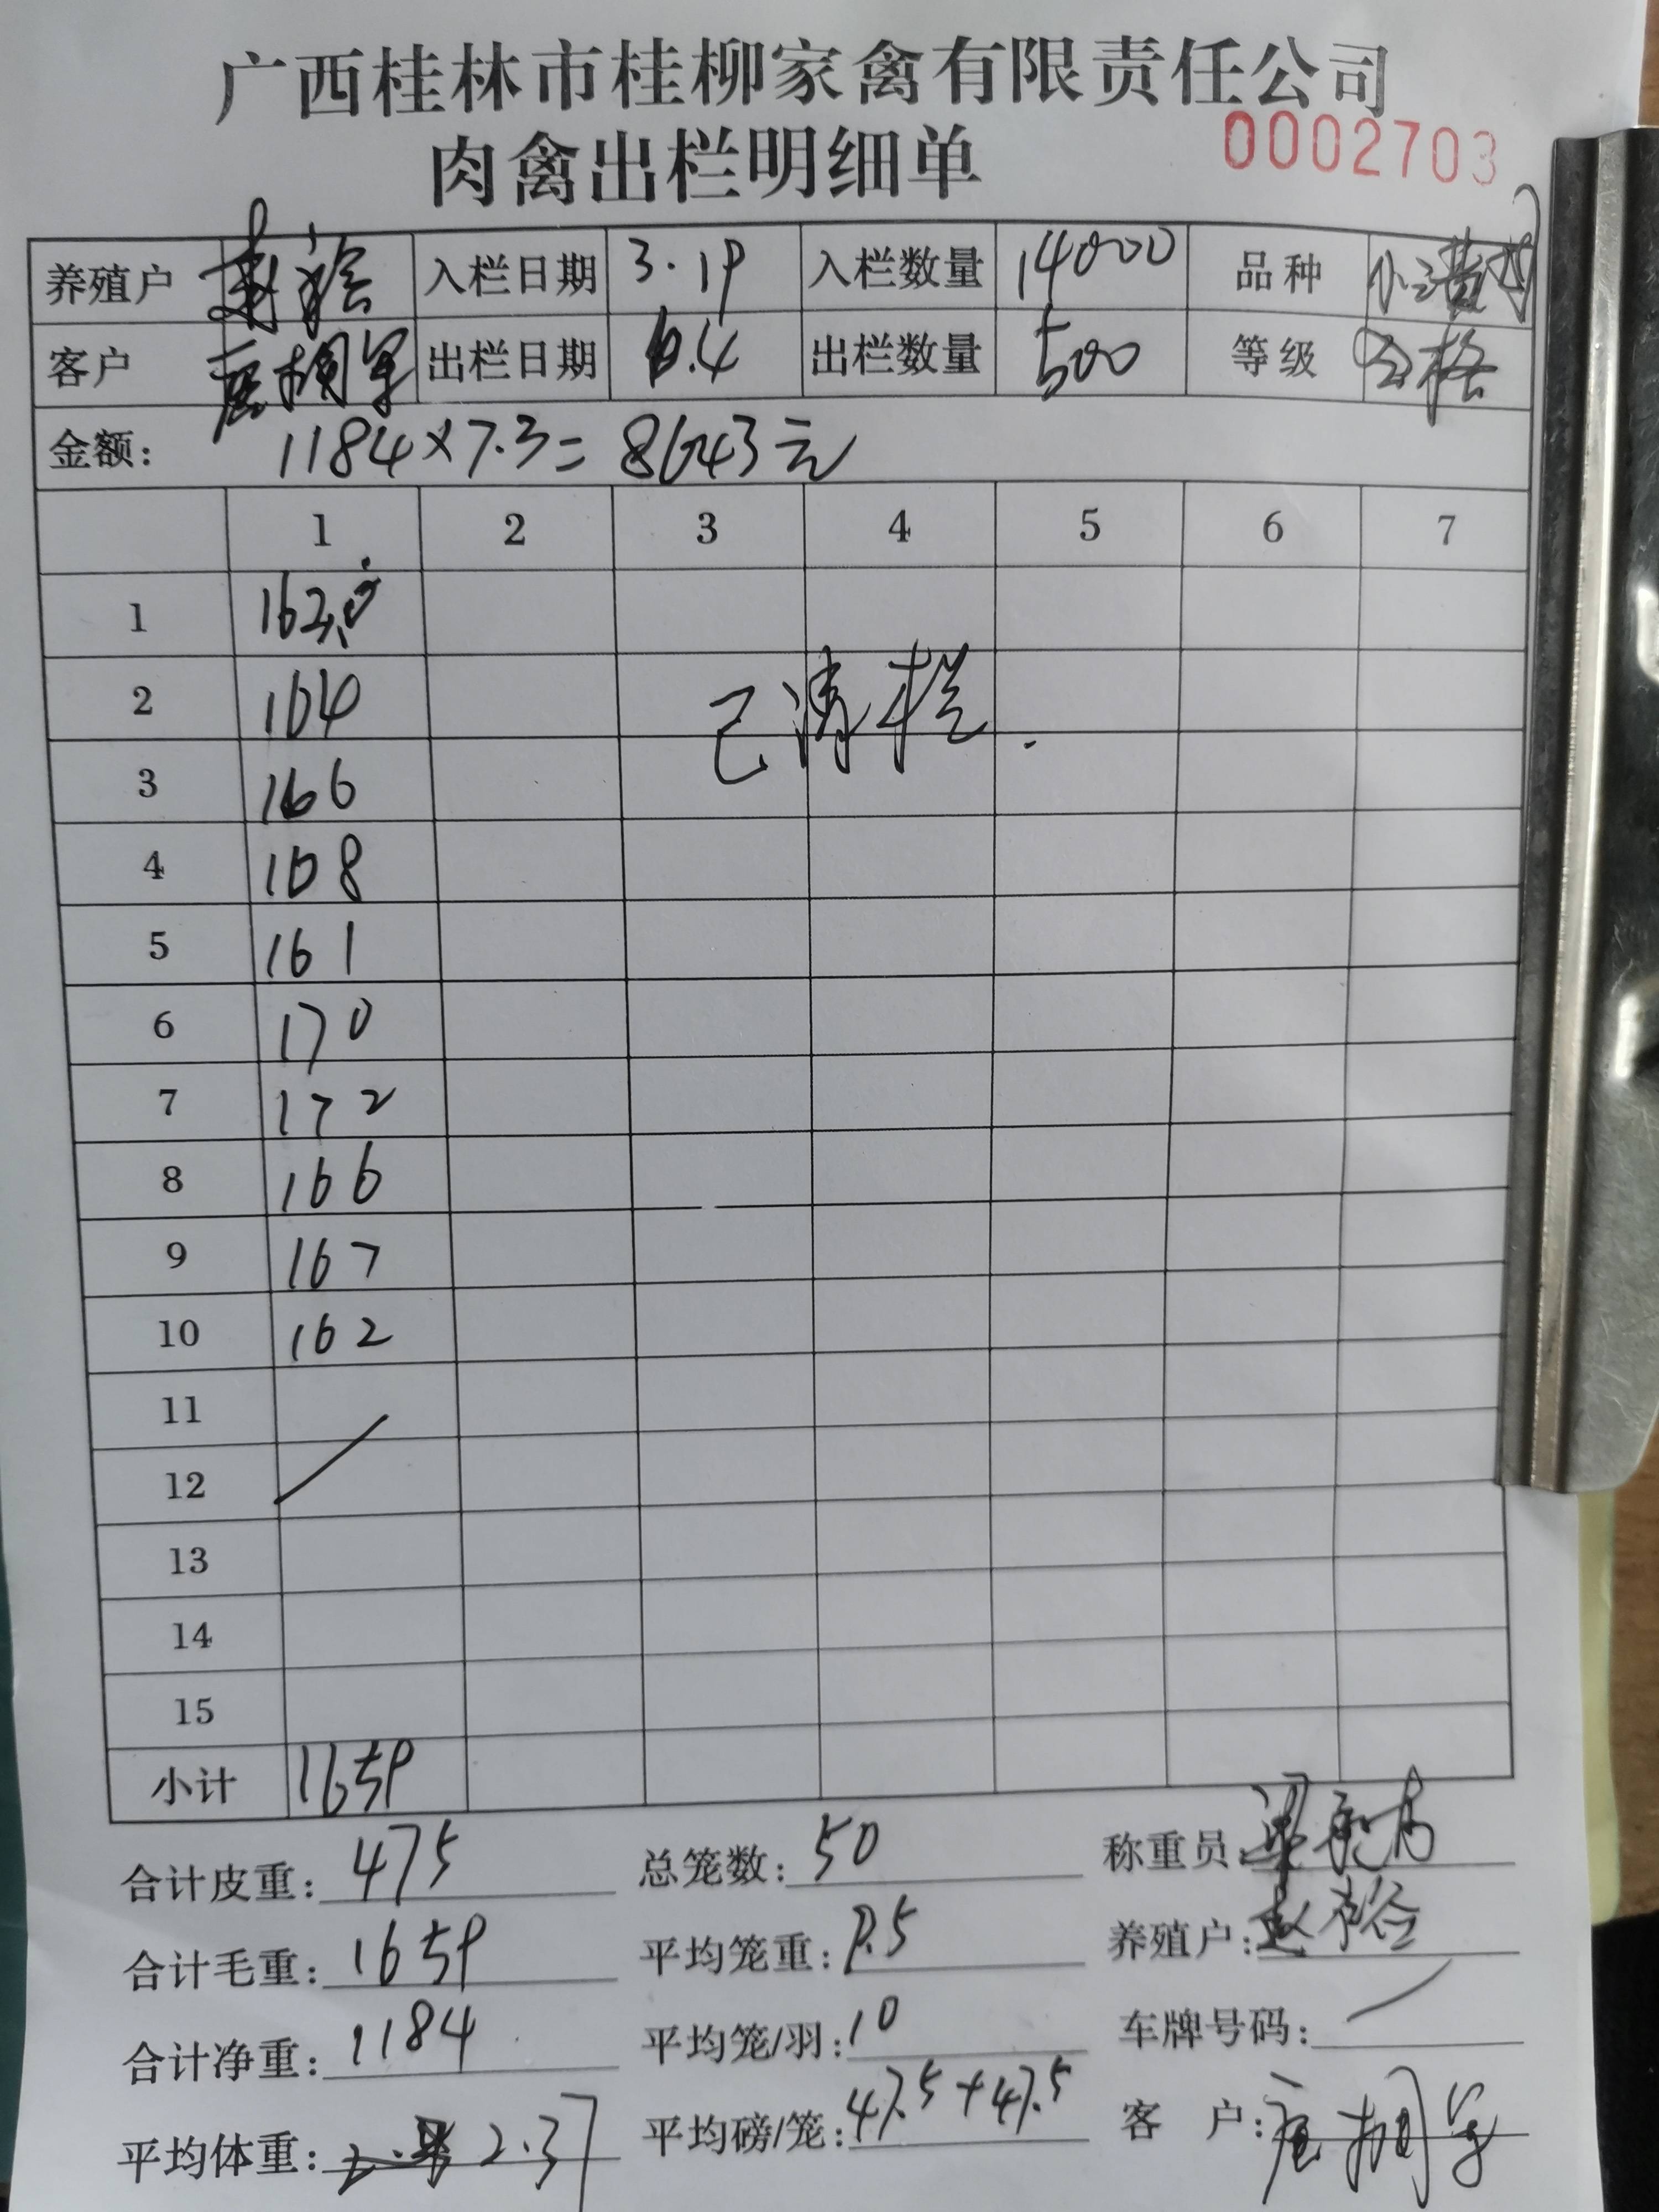 广西桂林市桂柳家禽有限责任公司
肉禽出栏明细单
0002703
养殖户 赵裕 入栏日期 3.19 入栏数量 14000 品种
客户 出栏日期 6.4 出栏数量 500 等级 合格
金额: 1184×7.3=8643元
1 2 3 4 5 6 7
1 163
2 164
已清栏.
3 166
4 168
5 161
6 170
7 172
8 166
9 167
10 162
11
12
13
14
15
小计 1659
合计皮重: 475 总笼数: 50 称重员:
合计毛重: 1659 平均笼重: 9.5 养殖户: 赵裕
合计净重: 1184 平均笼/羽: 10 车牌号码: /
平均体重: 2.37 平均磅/笼: 47.5+47.5 客 户: